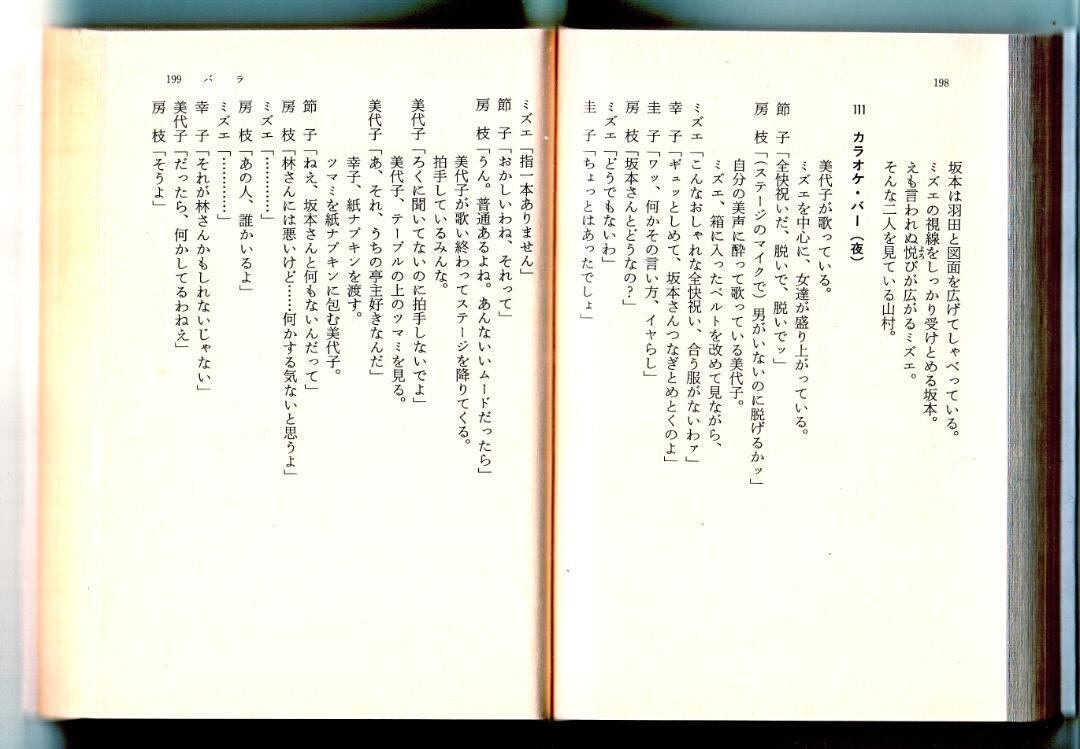 198
坂本は羽田と図面を広げてしゃべっている。
ミズエの視線をしっかり受けとめる坂本。
えも言われぬ悦びが広がるミズエ。
そんな二人を見ている山村。
111 カラオケ・バー（夜）
美代子が歌っている。
ミズエを中心に、女達が盛り上がっている。
節　子「全快祝いだ、脱いで、脱いでッ」
房　枝「（ステージのマイクで）男がいないのに脱げるかッ」
自分の美声に酔って歌っている美代子。
ミズエ、箱に入ったベルトを改めて見ながら、
ミズエ「こんなおしゃれな全快祝い、合う服がないわァ」
幸　子「ギュッとしめて、坂本さんつなぎとめとくのよ」
圭　子「ワッ、何かその言い方、イヤらし」
房　枝「坂本さんとどうなの？」
ミズエ「どうでもないわ」
圭　子「ちょっとはあったでしょ」
199 バラ
ミズエ「指一本ありません」
節　子「おかしいわね、それって」
房　枝「うん。普通あるよね。あんないいムードだったら」
美代子が歌い終わってステージを降りてくる。
拍手しているみんな。
美代子「ろくに聞いてないのに拍手しないでよ」
美代子、テーブルの上のツマミを見る。
美代子「あ、それ、うちの亭主好きなんだ」
幸子、紙ナプキンを渡す。
ツマミを紙ナプキンに包む美代子。
節　子「ねえ、坂本さんと何もないんだって」
房　枝「林さんには悪いけど……何かする気ないと思うよ」
ミズエ「…………」
房　枝「あの人、誰かいるよ」
ミズエ「…………」
幸　子「それが林さんかもしれないじゃない」
美代子「だったら、何かしてるわねえ」
房　枝「そうよ」